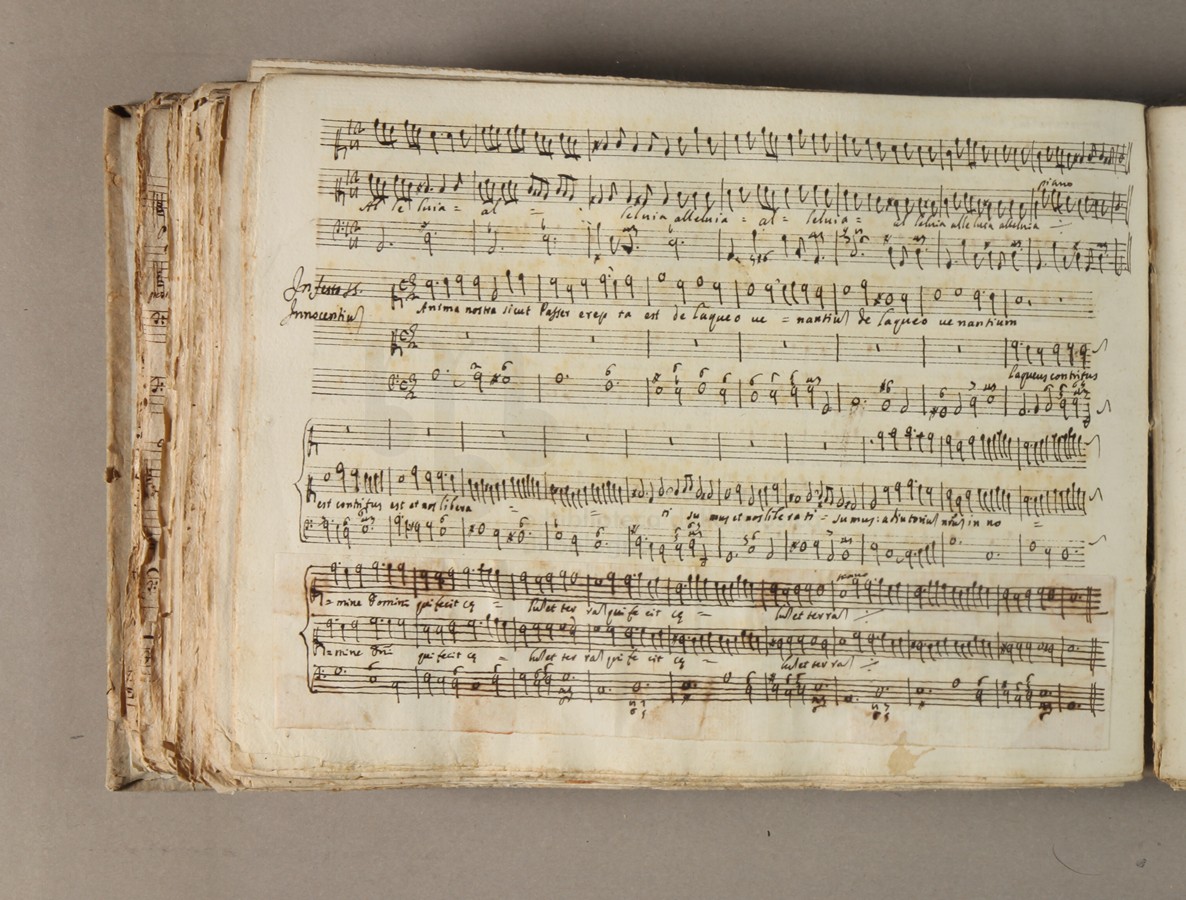 piano
Al le luia = al = leluia alleluia = al = leluia = al leluia alle luia alleluia
In festo SS.
Innocentiu
Anima nostra sicut Passer erep ta est de laqueo ve = nantiu de laqueo venantium
laqueus contritus
est contritus est et nos libera = = ti su mus et nos libe ra ti = sumus: adiutoriu nrm in no =
piano
= mine Domini qui fecit cę = lu et ter ra qui fe cit cę = lu et ter ra
= mine Dni qui fecit cę = lu et ter ra qui fe cit cę = lu et ter ra